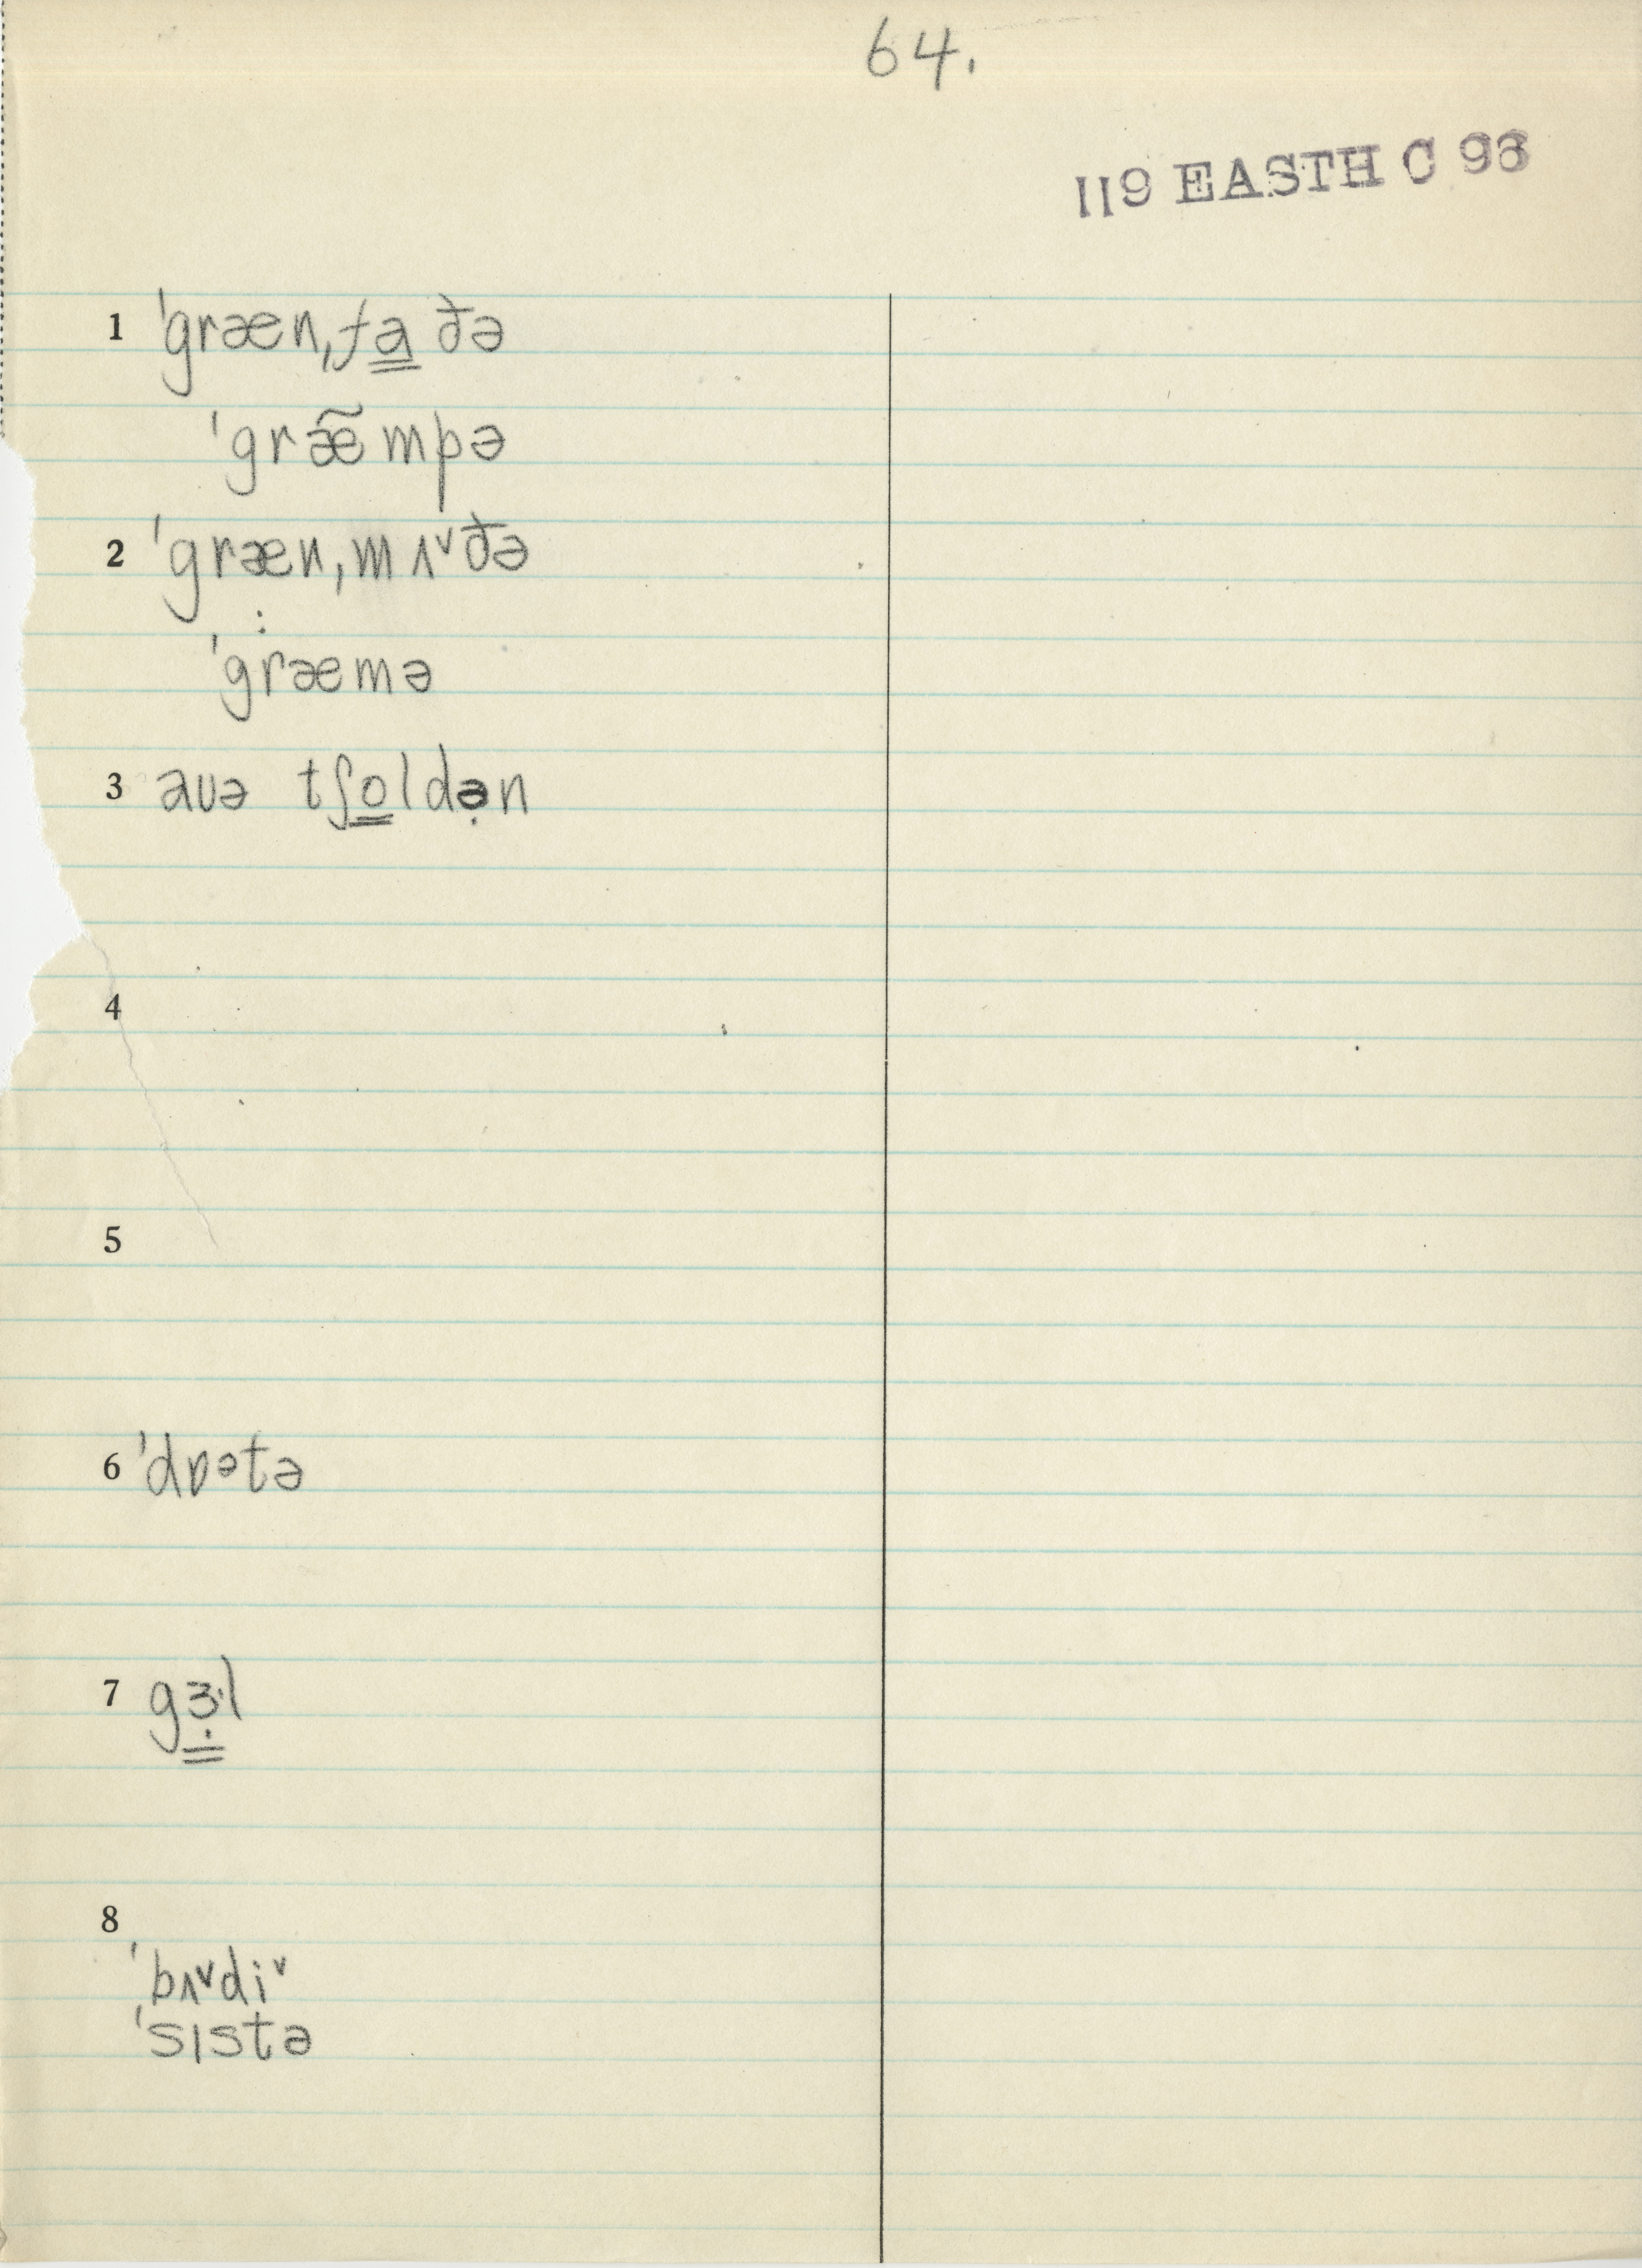 64.
119 EASTH C 93
1 ˈgræn,fa̳ðə
ˈgræ̃mpə
2 ˈgræn,mʌ˅ðə
:
ˈgræmə
3 aʊə tʃo̳ldə̣n
4
5
6 ˈdɒᵊtə
7 gɜ̣̳·l
8
ˈbʌ˅di˅
ˈsɪstə